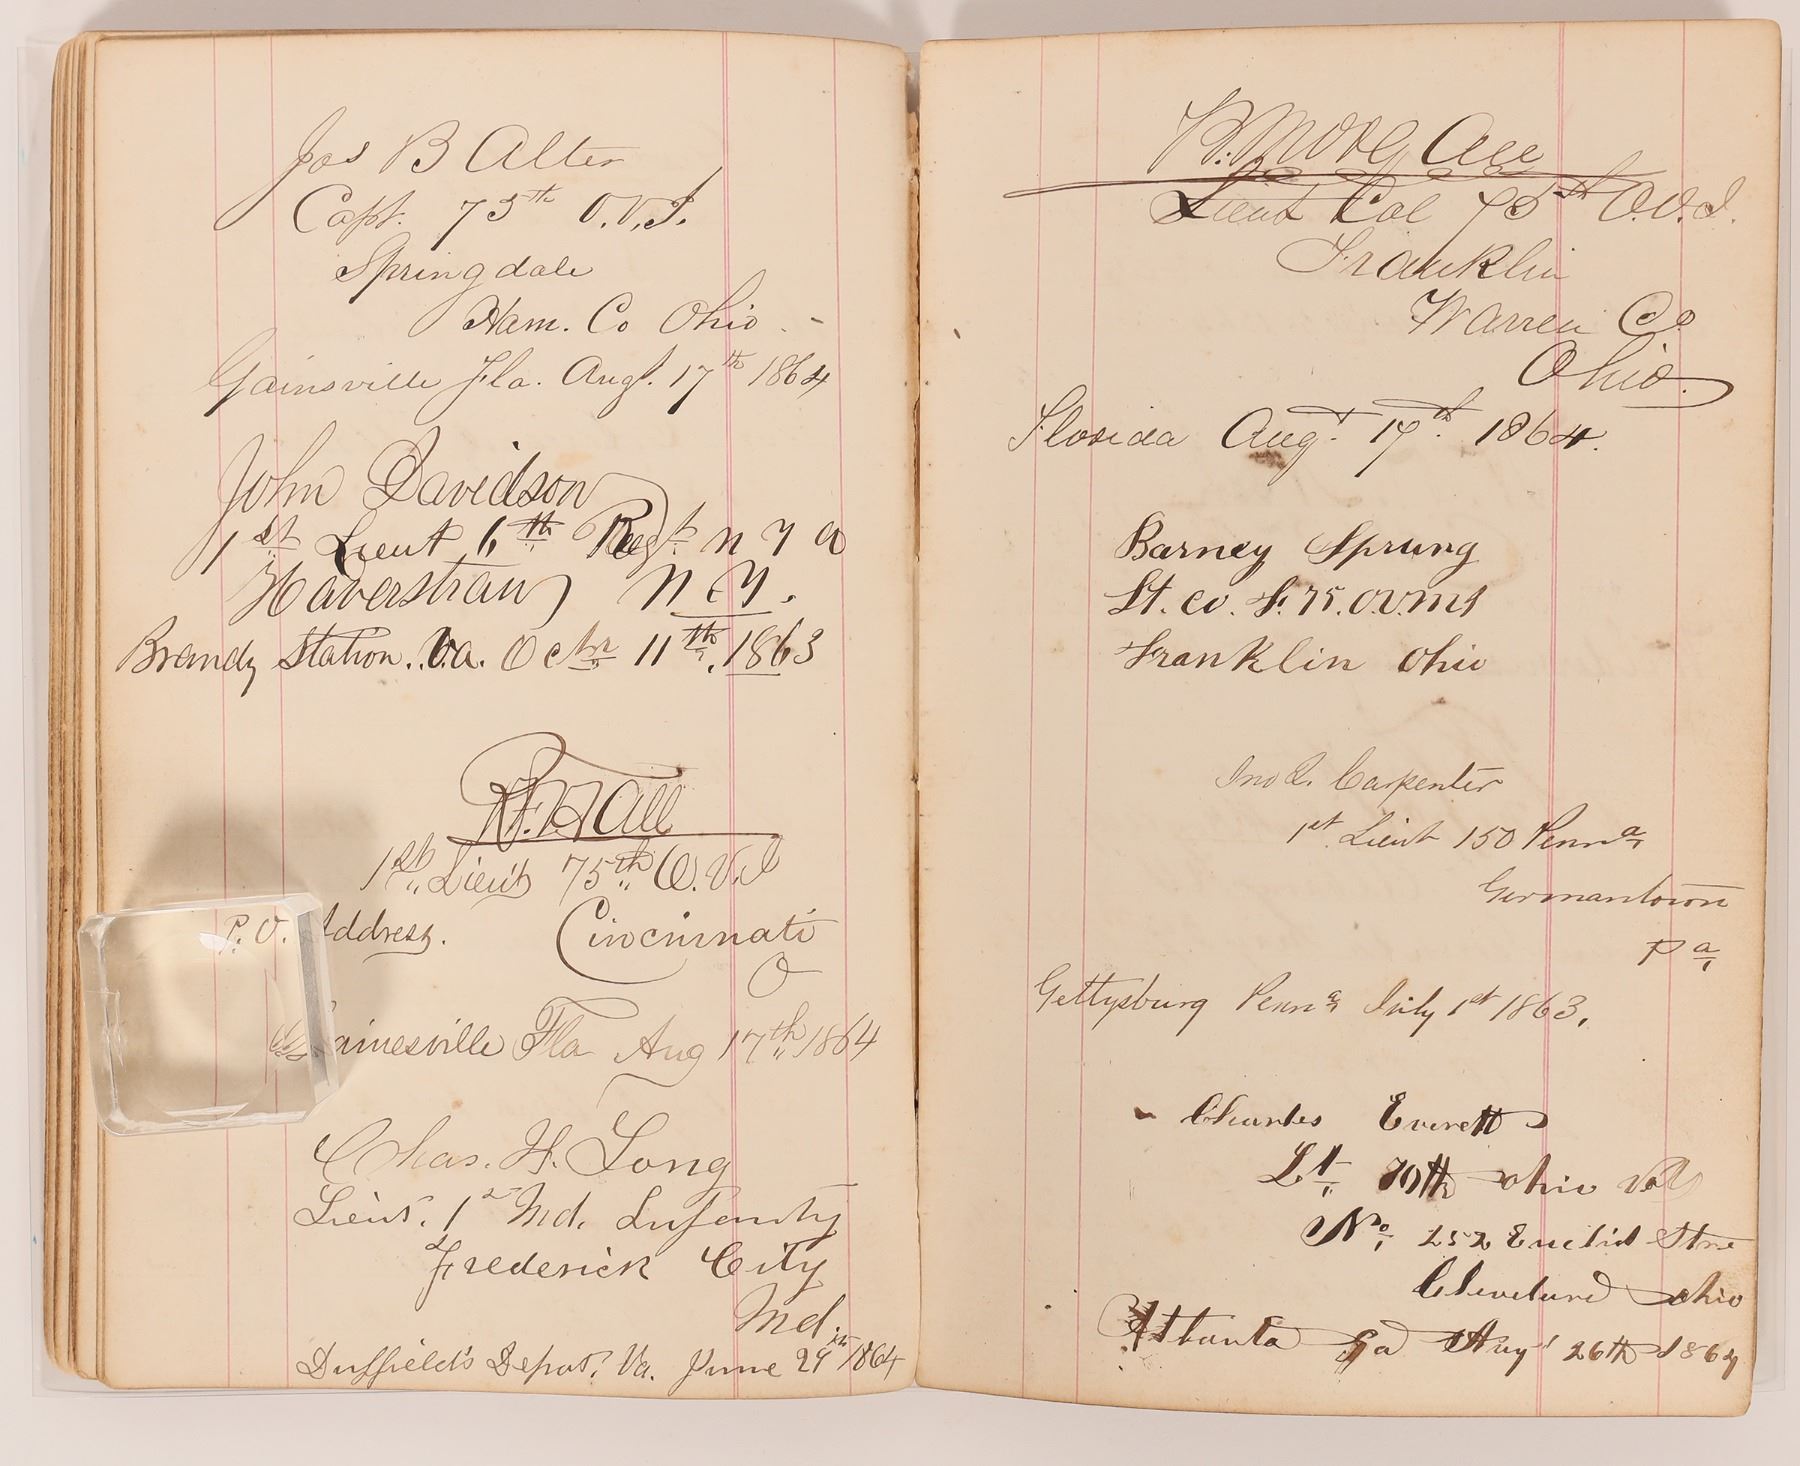 Jos B Alter
Capt. 75th O.V.I.
Springdale
Ham. Co Ohio -
Gainsville Fla. Augt. 17th 1864
John Davidson
1st Lieut 6th Regt N Y A
Haverstraw N.Y.
Brandy Station. Va. Octbr 11th, 1863
Hall
1st Lieut 75th O.V.I
P.O. Address. Cincinnati
O
Gainesville Fla Aug 17th 1864
Chas. H. Long
Lieut. 1st Md. Infantry
Frederick City
Md.
Duffield's Depot. Va. June 29th 1864
Morgan
Lieut Col 75th O.V.I.
Franklin
Warren Co
Ohio.
Florida Augt 17th 1864.
Barney Sprung
Lt. co. F. 75. O.V.
Franklin Ohio
Jno Q. Carpenter
1st Lieut 150 Penna
Germantown
Pa
Gettysburg Penna July 1st 1863.
- Charles Everett
Lt 70th Ohio Vol
No. 252 Euclid
Cleveland Ohio
Atlanta Ga Aug 26th 1864